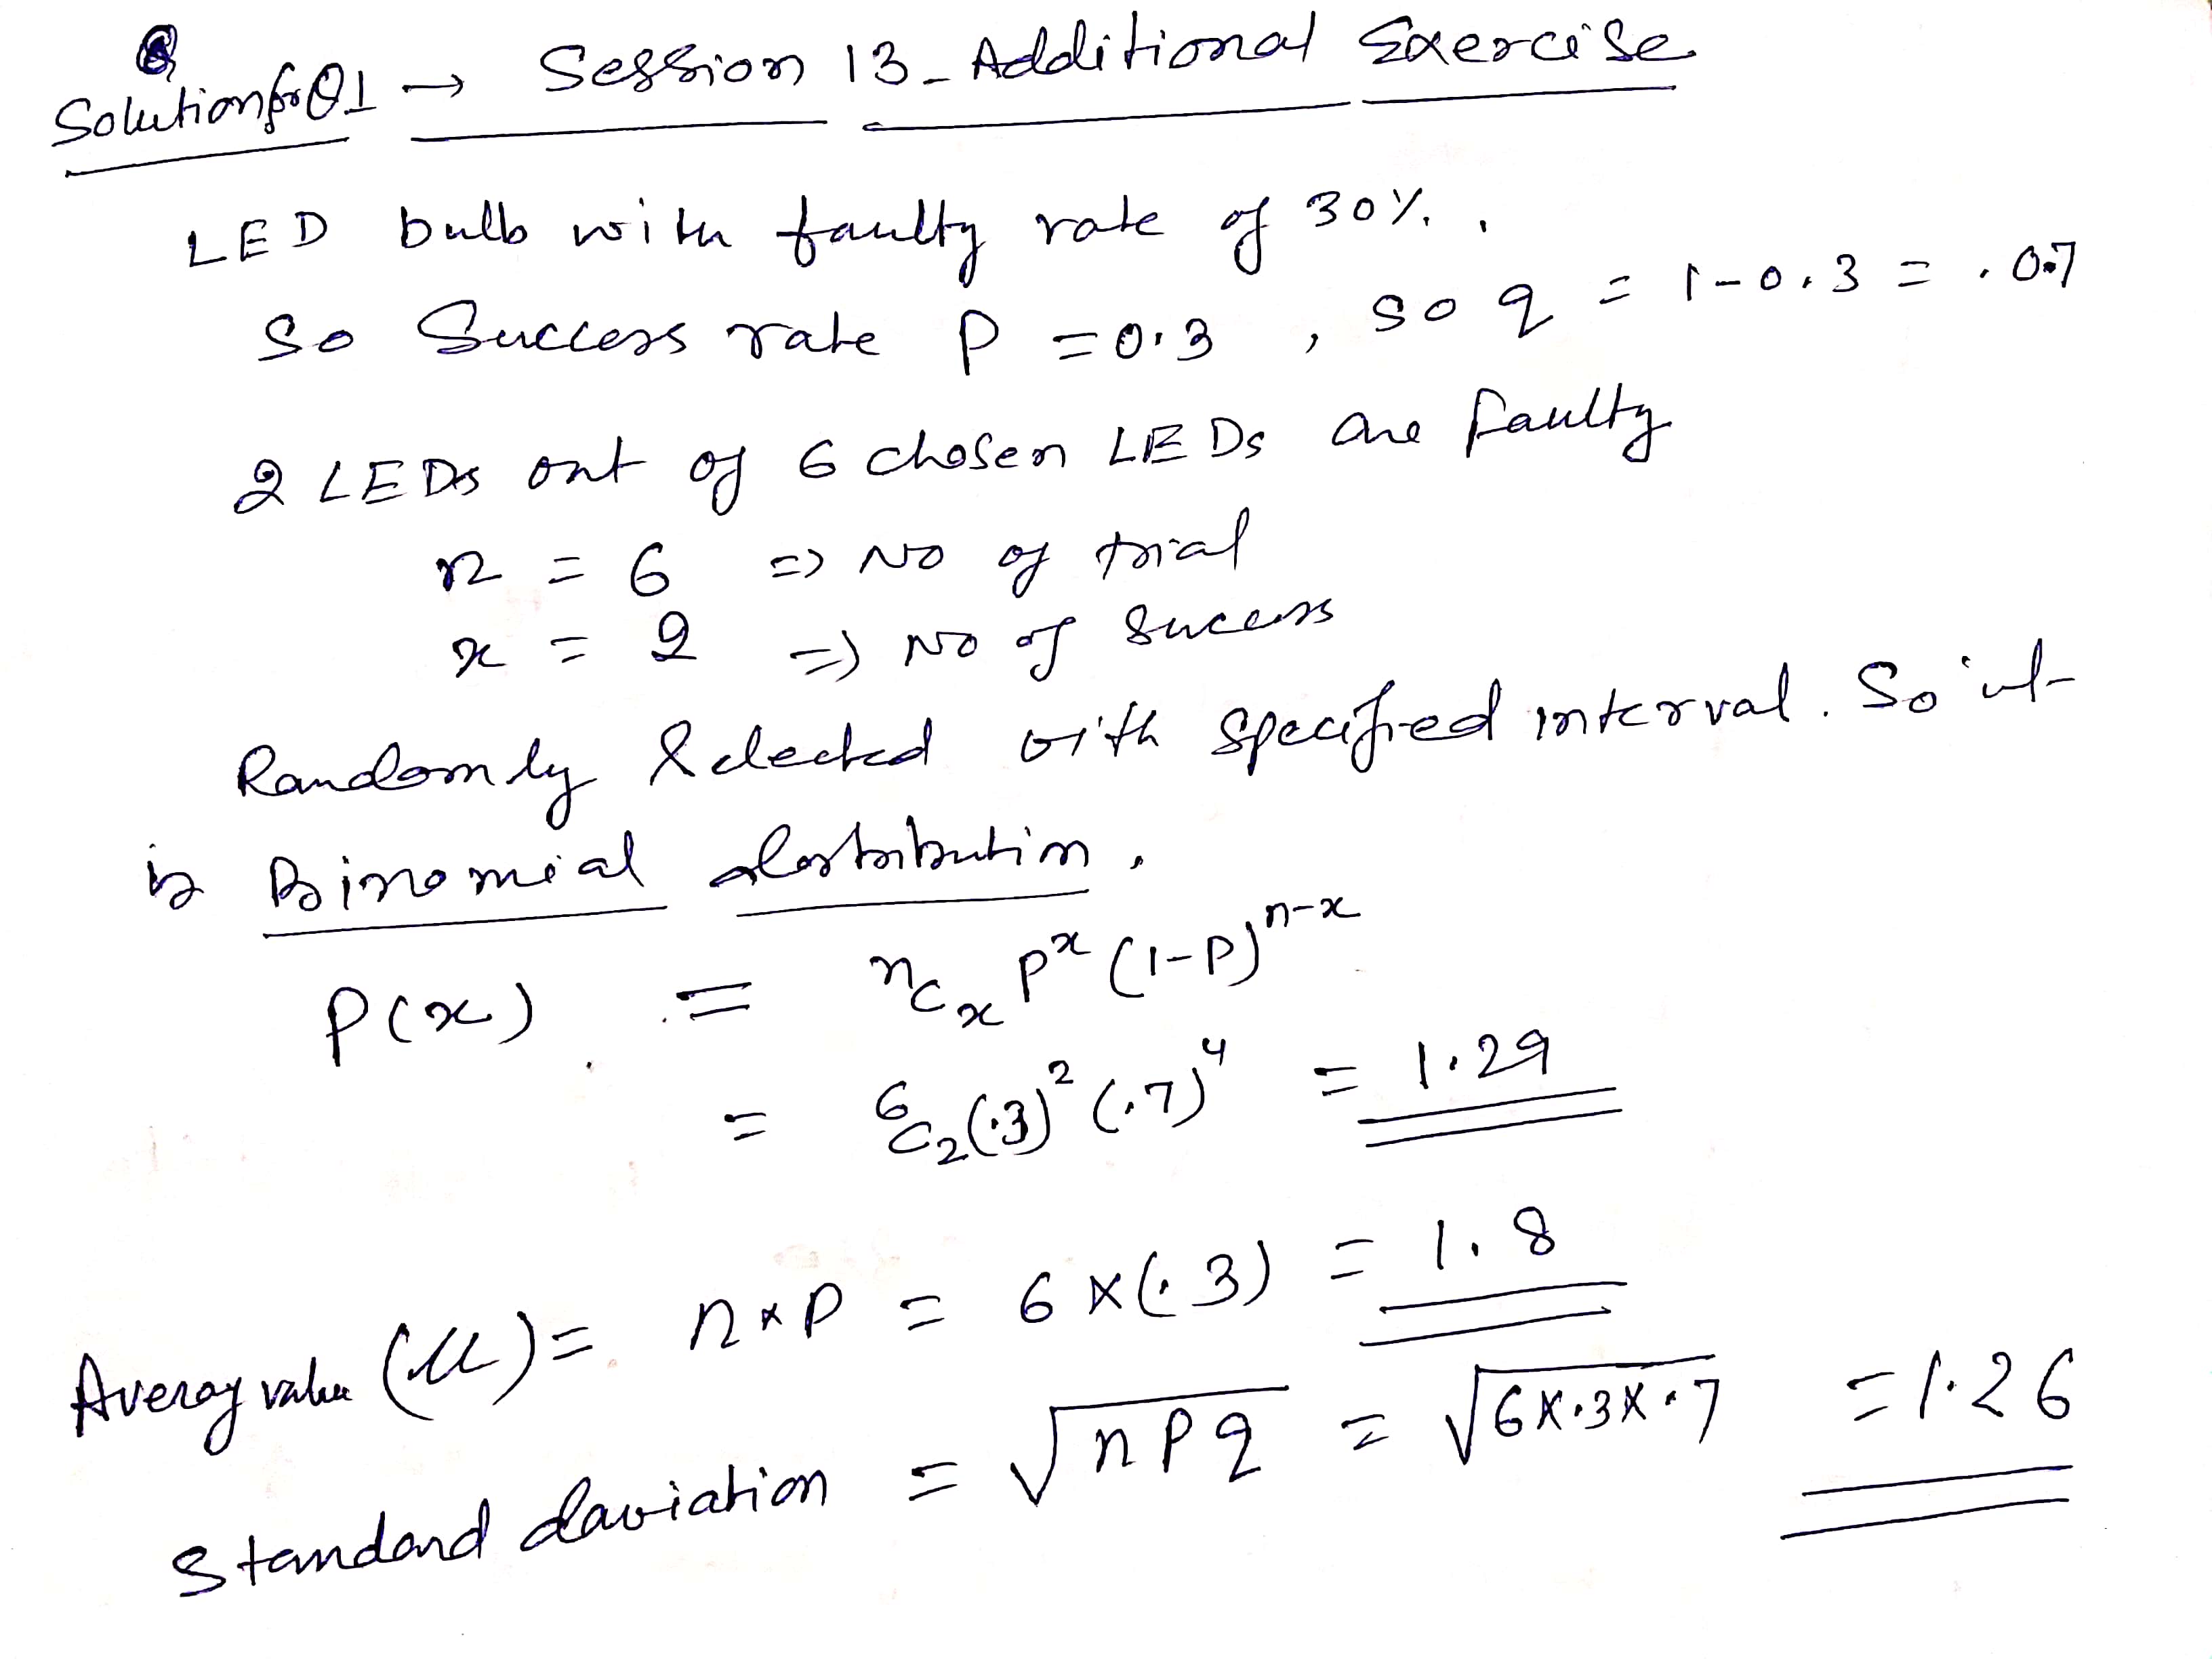 Solution for Q1 → Session 13 - Additional Exercise
LED bulb with faulty rate of 30%.
So Success rate P = 0.3, so q = 1-0.3 = .0.7
2 LEDs out of 6 chosen LEDs are faulty
n = 6 => No of trial
x = 2 => No of sucess
Randomly selected with specified interval. So it
is Binomial distribution.
P(x) = nCx P^x (1-P)^n-x
= 6C2 (.3)^2 (.7)^4 = 1.29
Averag value (μ) = n×p = 6×(.3) = 1.8
Standard daviation = √npq = √6×.3×.7 = 1.26